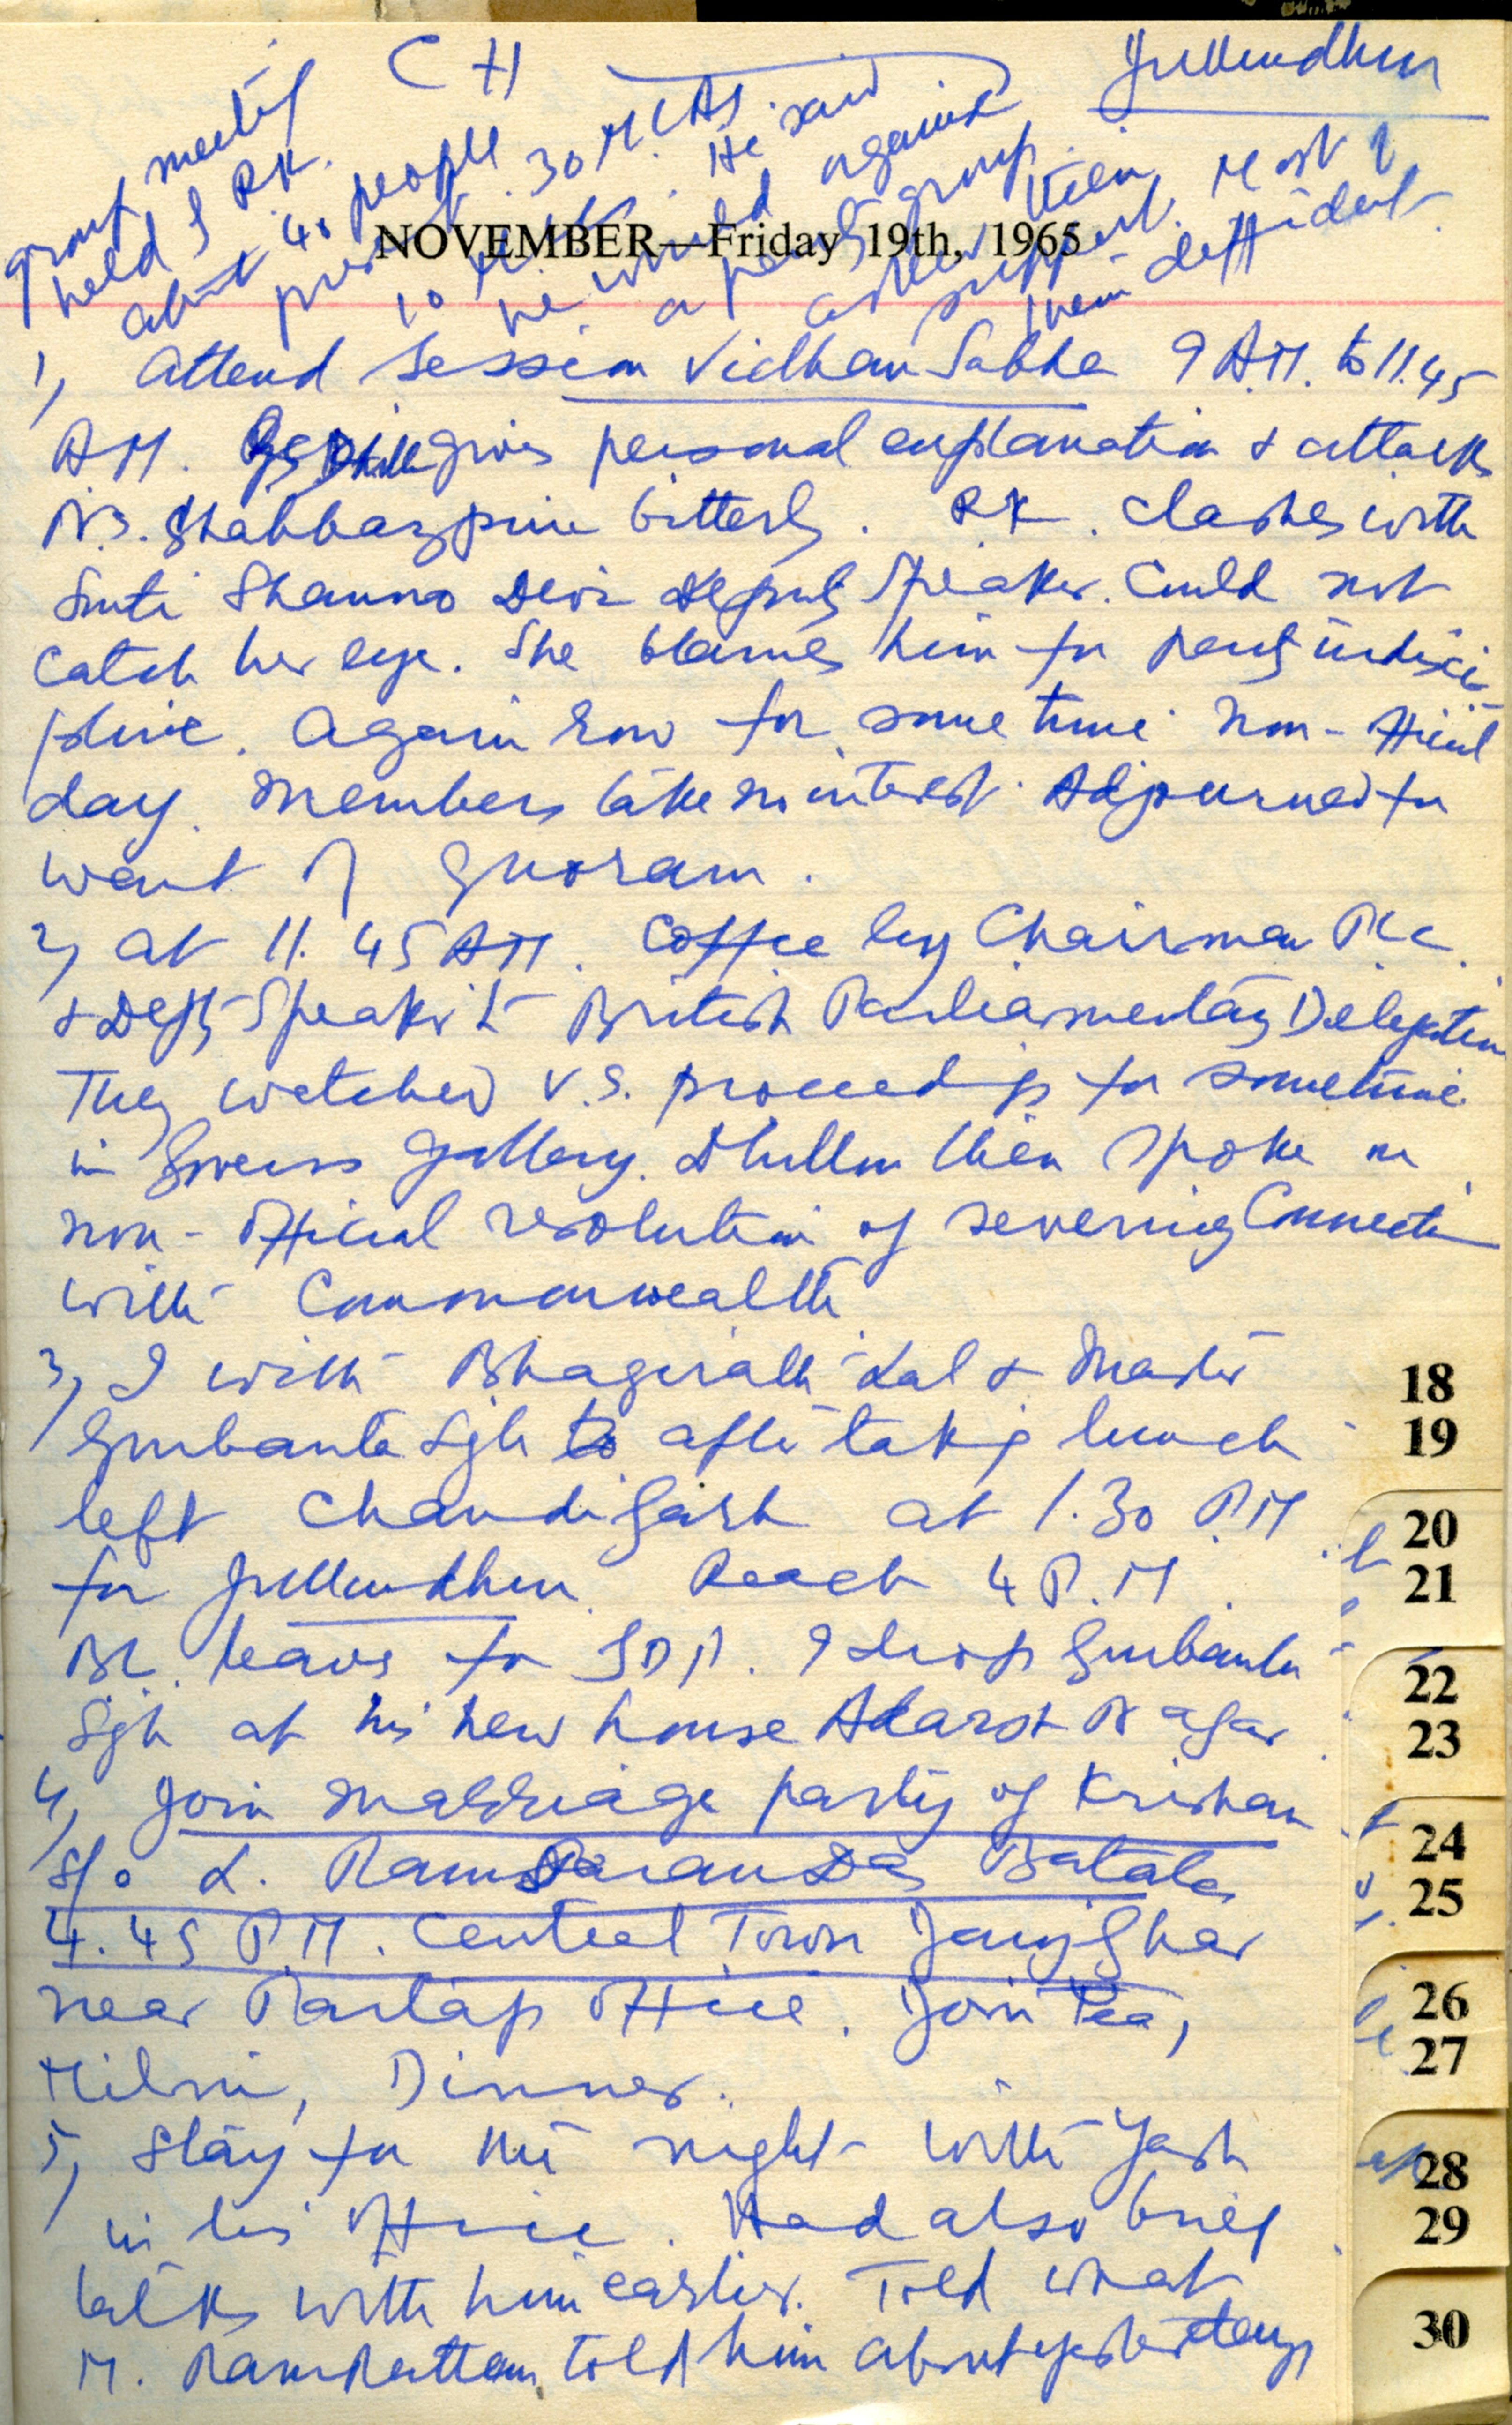 CH
Jullundhur
group meeting
held of RK.
about 40 people
present. 30 M.L.As
10 He said
he would against
a party group.
asked their
support. Most of
them diffident.
NOVEMBER—Friday 19th, 1965
1, Attend session Vidhan Sabha 9 A.M. to 11.45
A.M. gives personal explanation & attacks
N.S. Shahbazpuri bitterly. R.K. clashes with
Smti Shanno Devi Deputy Speaker. Could not
catch her eye. She blames him for party indisci-
pline. Again row for some time. Non-official
day. Members take no interest. Adjourned for
want of Quoram.
2, at 11.45 AM. Coffee by Chairman P.L.C.
& Depty Speaker to British Parliamentary Delegation
They watched V.S. proceedings for sometime
in Govrs gallery. Dhillon then spoke on
non-official resolution of severing Connection
with Commonwealth
3, I with Bhagirath Lal & Master
Gurbanta Sgh to after taking lunch
left Chandigarh at 1.30 P.M
for Jullundhur. Reach 4 P.M.
BL. leaves for I drop Gurbanta
Sgh at his new house Adarsh Nagar
4, Join marriage party of Krishan
S/o L. Ram Saran Das Batala
4.45 P.M. Central Town Janjghar
near Partap Office. Join Tea,
Milni, Dinner.
5, Stay for the night with Yash
in his Office. Had also brief
talks with him earlier. Told what
M. Ram Rattan told him about yesterdays
18
19
20
21
22
23
24
25
26
27
28
29
30